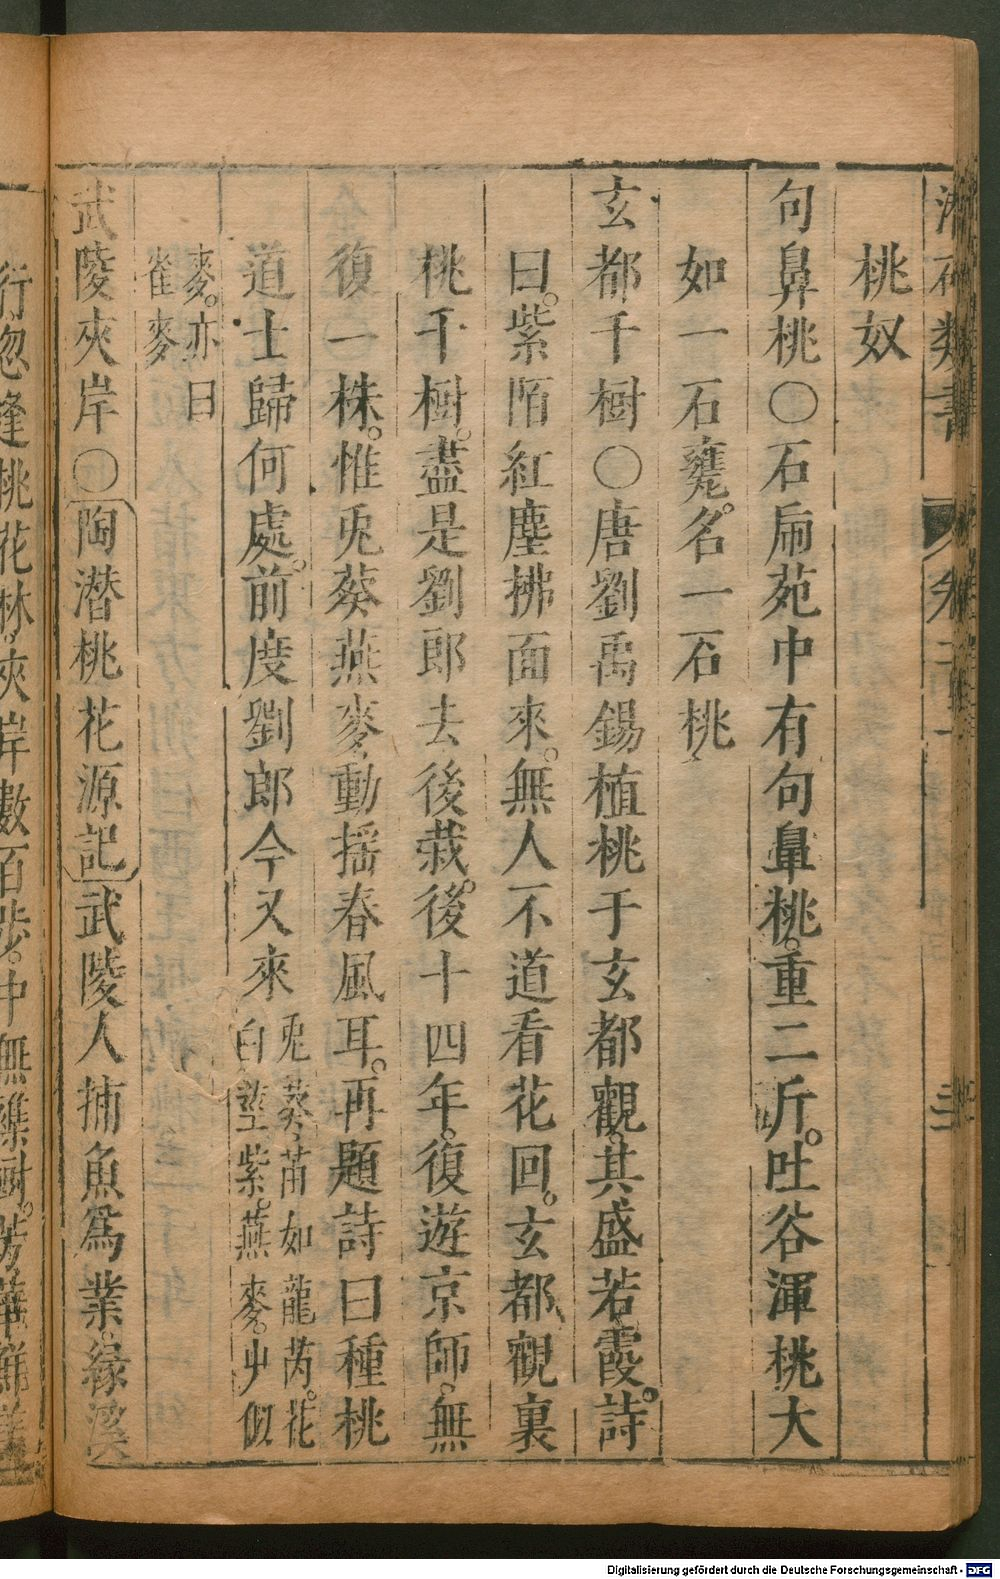 類書
桃奴
句鼻桃〇石扄苑中有句鼻桃。重二斤。吐谷渾桃大
如一石甕。名一石桃
玄都千樹〇唐劉禹錫植桃于玄都觀。其盛若霞。詩
曰。紫陌紅塵拂面來。無人不道看花回。玄都觀裏
桃千樹。盡是劉郎去後栽。後十四年。復遊京師。無
復一株。惟兎葵燕麥動搖春風耳。再題詩曰種桃
道士歸何處。前度劉郎今又來兎葵苗如龍芮。花
白莖紫。燕麥。屮似
麥。亦曰
雀麥
武陵夾岸〇陶潛桃花源記武陵人捕魚爲業。緣溪
行忽逢桃花林。夾岸數百步。中無雜樹。芳華鮮
Digitalisierung gefördert durch die Deutsche Forschungsgemeinschaft - DFG